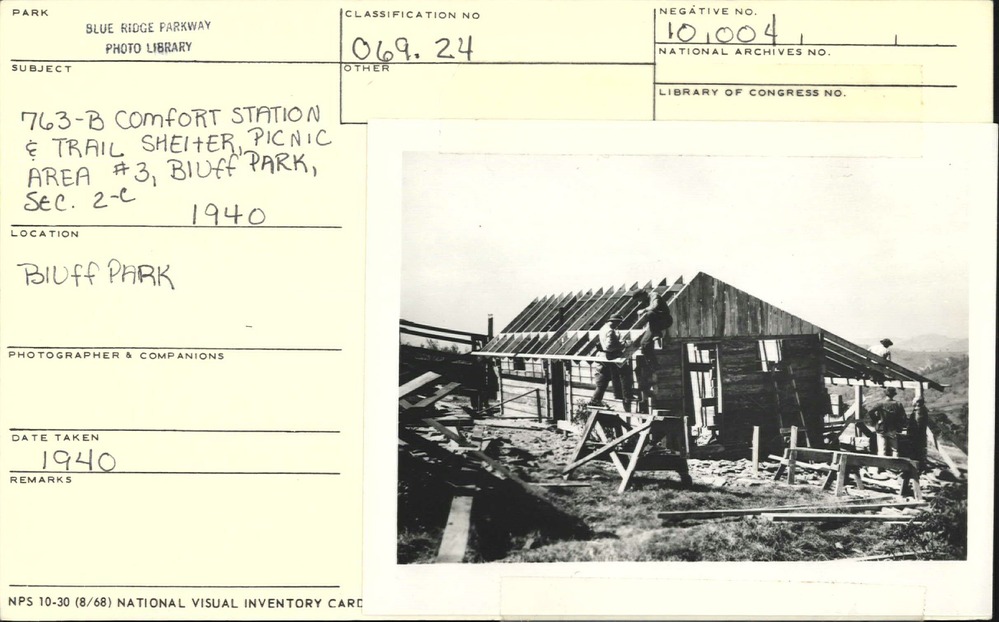 PARK
BLUE RIDGE PARKWAY
PHOTO LIBRARY
CLASSIFICATION NO
069.24
NEGATIVE NO.
10,004
NATIONAL ARCHIVES NO.
SUBJECT
OTHER
LIBRARY OF CONGRESS NO.
763-B COMFORT STATION
& TRAIL SHELTER, PICNIC
AREA #3, BLUFF PARK,
SEC. 2-C
1940
LOCATION
BLUFF PARK
PHOTOGRAPHER & COMPANIONS
DATE TAKEN
1940
REMARKS
NPS 10-30 (8/68) NATIONAL VISUAL INVENTORY CARD